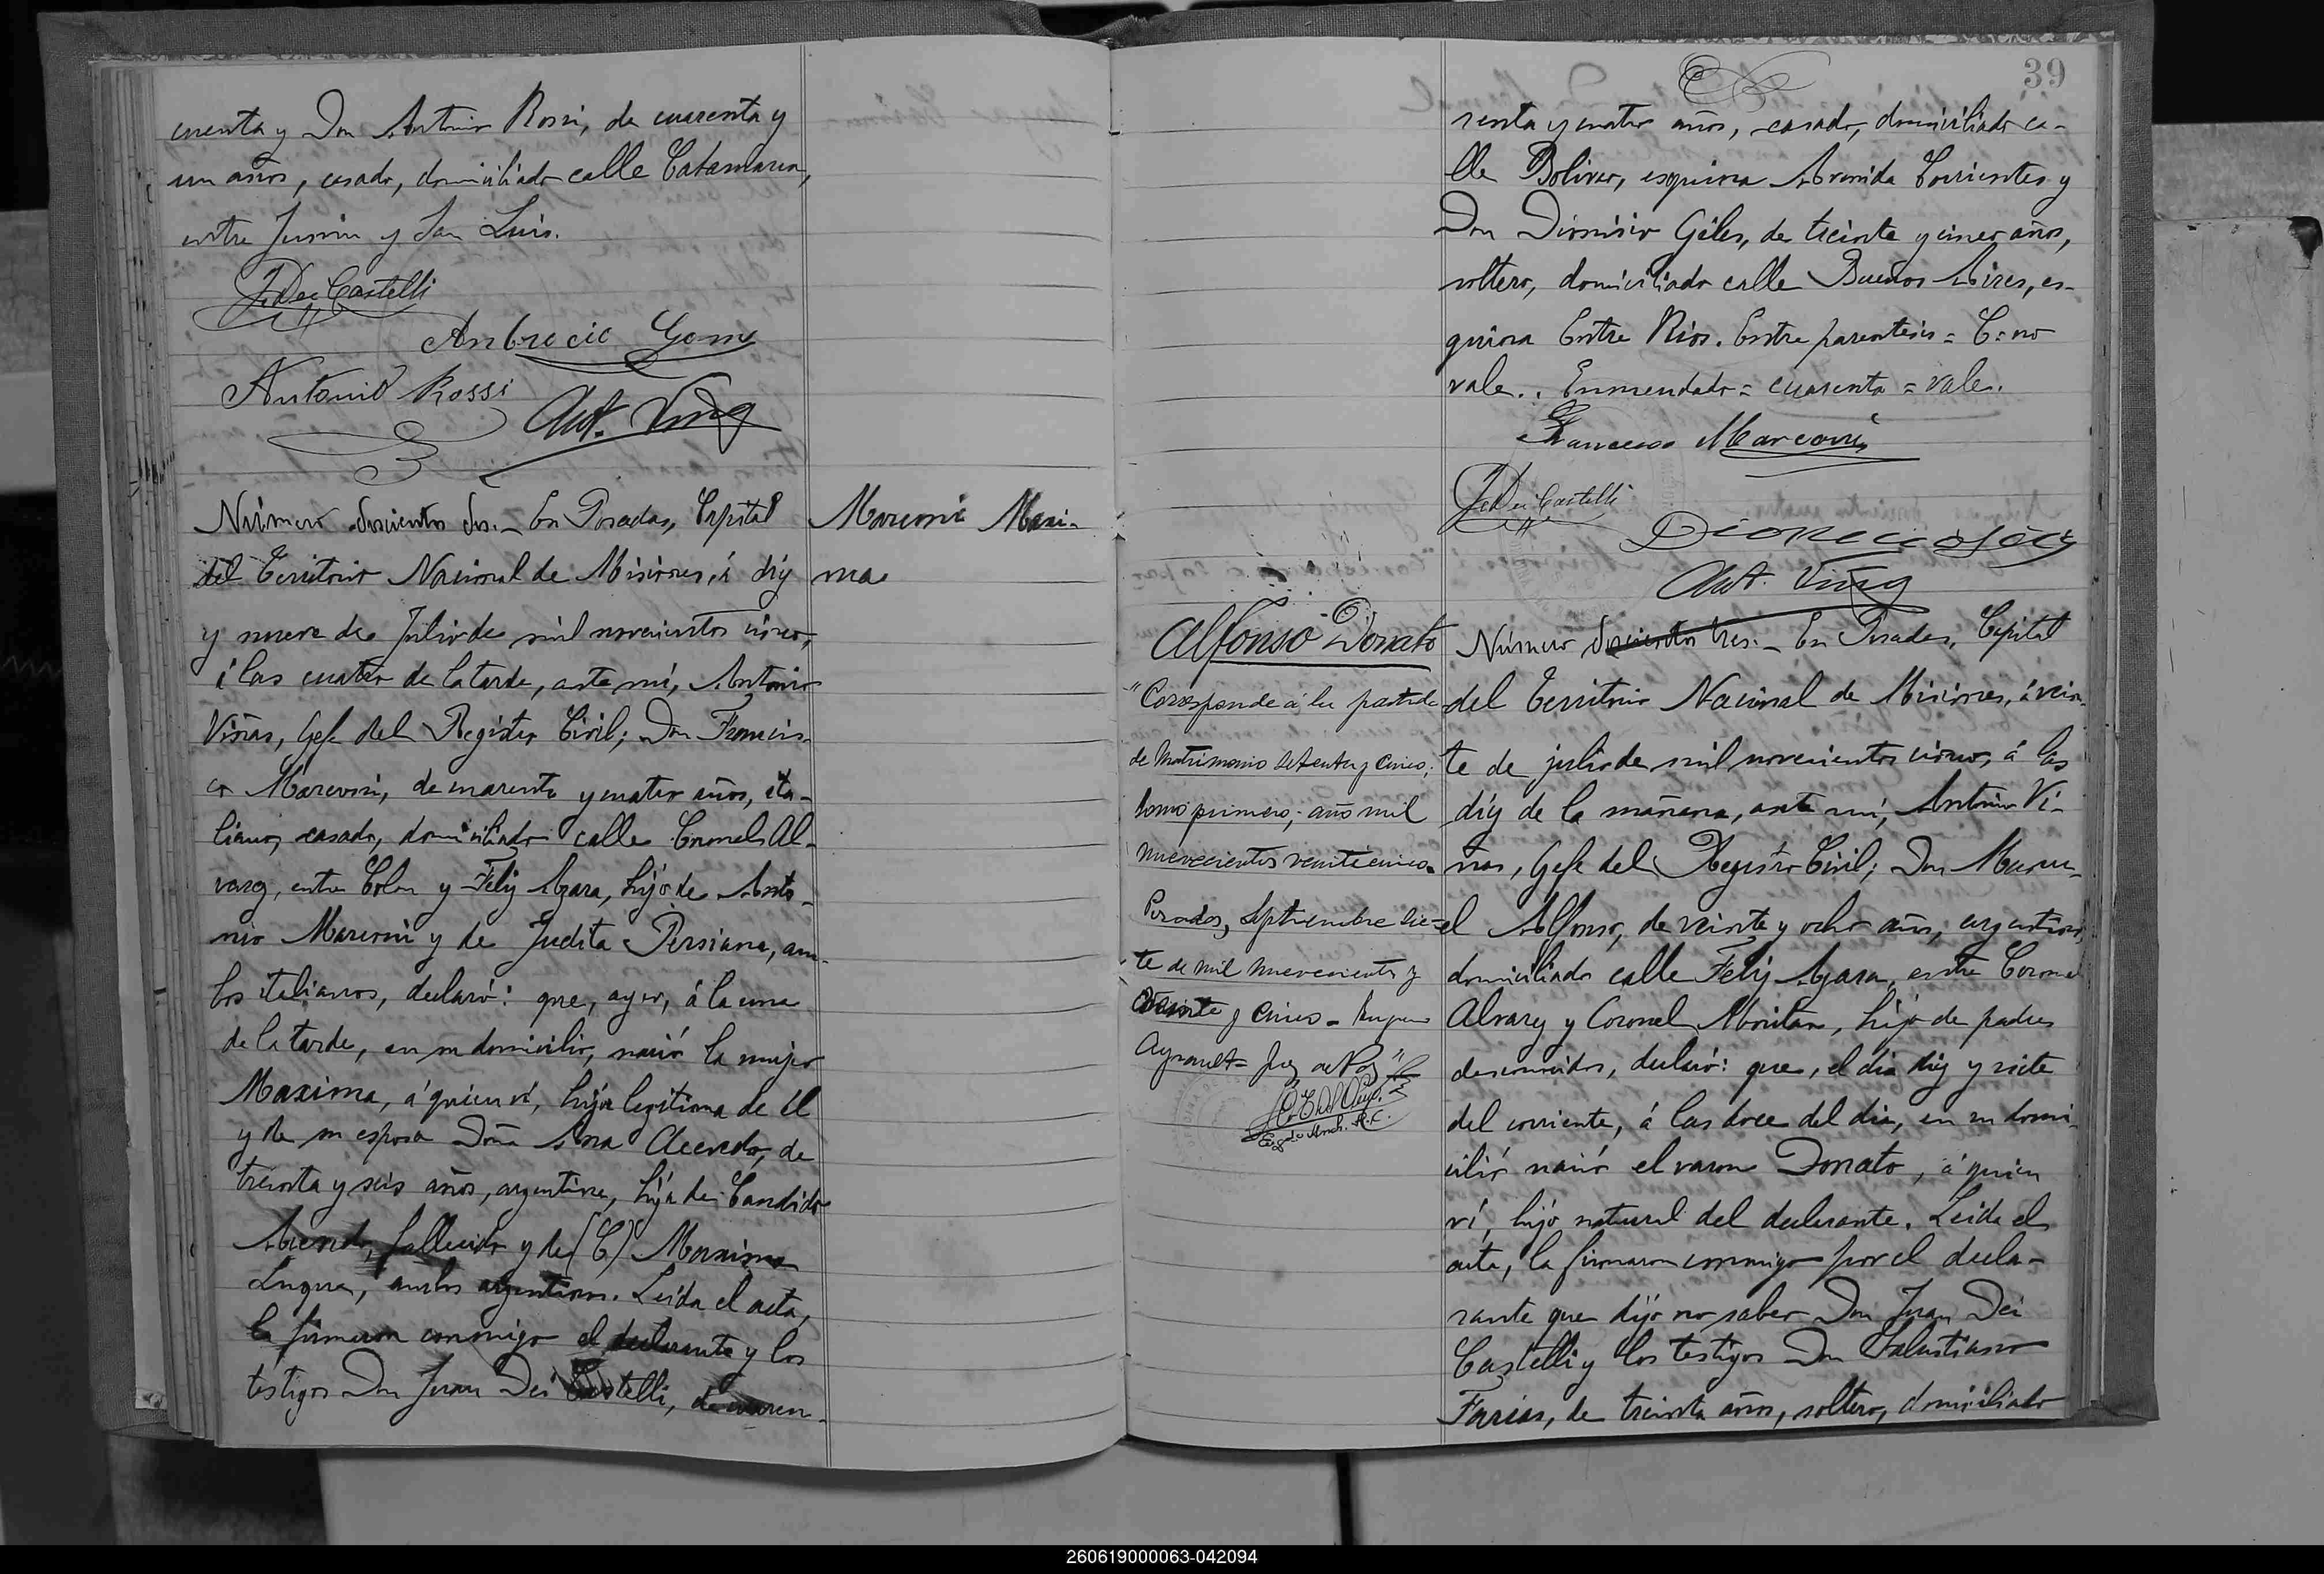 cuenta y Don Antonio Rossi, de cuarenta y
un años, casado, domiciliado calle Catamarca,
entre Junin y San Luis.
J. Dei Castelli
Ambrocio Gomez
Antonio Rossi
Ant. Viñas
Número doscientos dos._ En Posadas, Capital
del Territorio Nacional de Misiones, á diez
y nueve de Julio de mil novecientos cinco,
á las cuatro de la tarde, ante mí, Antonio
Viñas, Gefe del Registro Civil; Don Francis-
co Marconi, de cuarenta y cuatro años, ita-
liano, casado, domiciliado calle Coronel Al-
varez, entre Colon y Feliz Azara, hijo de Anto-
nio Marconi y de Judita Persiana, am-
bos italianos, declaró: que, ayer, á la una
de la tarde, en su domicilio, nació la mujer
Maxima, á quien ví, hija legitima de él
y de su esposa Doña Ana Acevedo, de
treinta y seis años, argentina, hija de Candido
Acevedo, fallecido y de (C) Maxima
Luque, ambos argentinos. Leida el acta,
la firmaron conmigo el declarante y los
testigos Don Juan Dei Castelli, de cuaren-
Marconi Maxi-
ma
39
renta y cuatro años, casado, domiciliado ca-
lle Bolivar, esquina Avenida Corrientes y
Don Dionisio Giles, de treinta y cinco años,
soltero, domiciliado calle Buenos Aires, es-
quina Entre Rios. Entre parentesis = C = no
vale.. Enmendado = cuarenta = vale.
Francesco Marconi
J. Dei Castelli
Ant. Viñas
Alfonso Donato
"Corresponde á la partida
de Matrimonio setenta y cinco;
tomo primero; año mil
nuevecientos veinticinco.
Posadas, Septiembre sie-
te de mil nuevecientos y
veinte y cinco =
Juez de Paz"
Número doscientos tres._ En Posadas, Capital
del Territorio Nacional de Misiones, á vein-
te de julio de mil novecientos cinco, á las
diez de la mañana, ante mí, Antonio Vi-
ñas, Gefe del Registro Civil; Don Manu-
el Alfonso, de veinte y ocho años, argentino,
domiciliado calle Feliz Azara, entre Coronel
Alvarez y Coronel Moritan, hijo de padres
desconocidos, declaró: que, el dia diez y siete
del corriente, á las doce del dia, en su domi-
cilio nació el varon Donato, á quien
ví, hijo natural del declarante. Leida el
acta, la firmaron conmigo por el decla-
rante que dijo no saber Don Juan Dei
Castelli y los testigos Don Salustiano
Farias, de treinta años, soltero, domiciliado
260619000063-042094